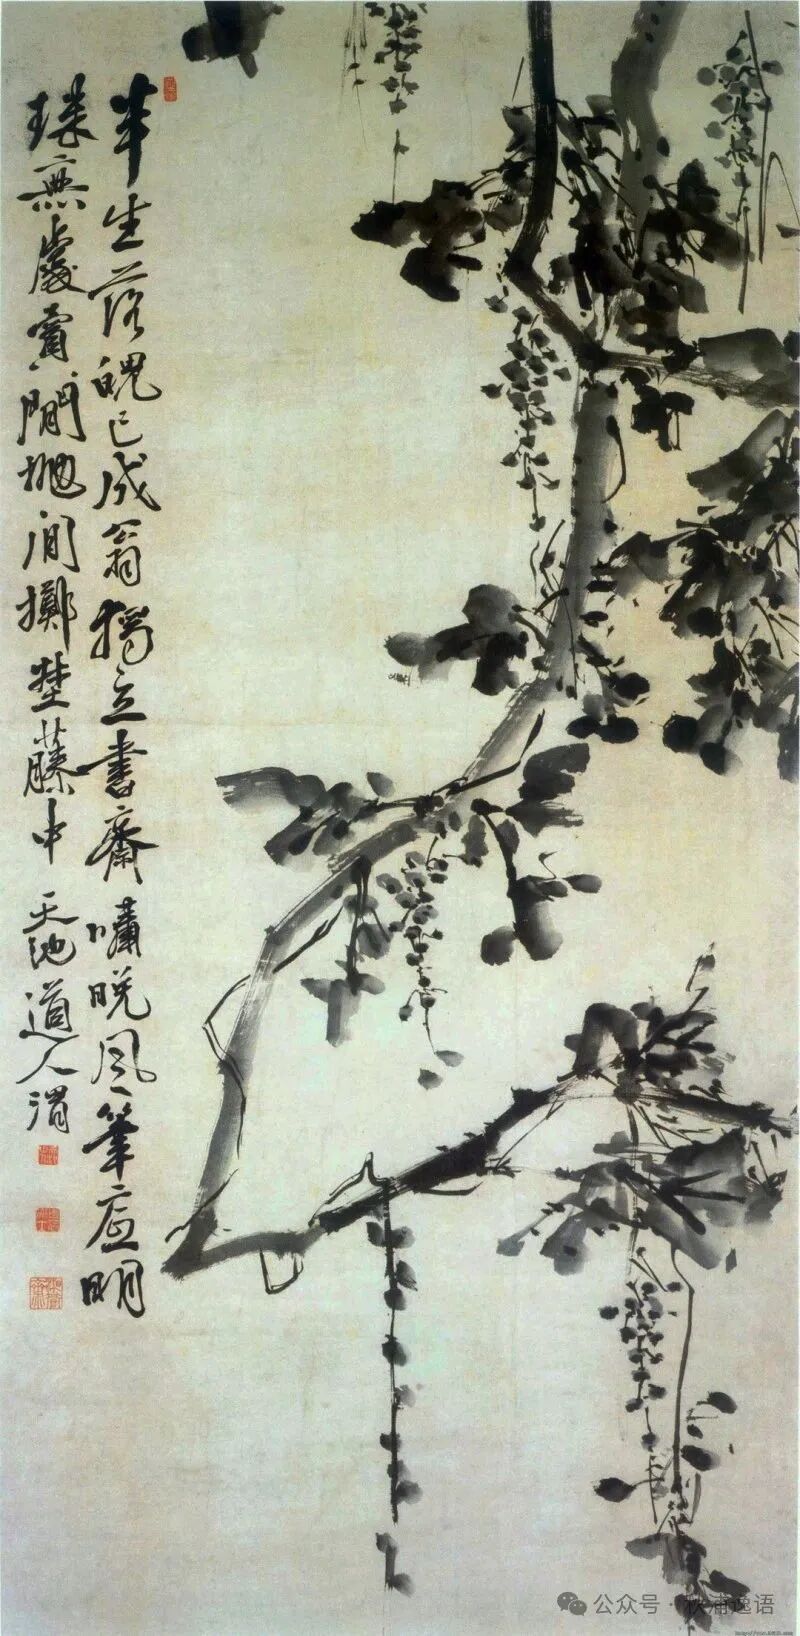 半生落魄已成翁獨立書齋嘯晚風筆底明
珠無處賣閒拋閒擲野藤中 天池道人渭
公众号 · 秋浦逸语